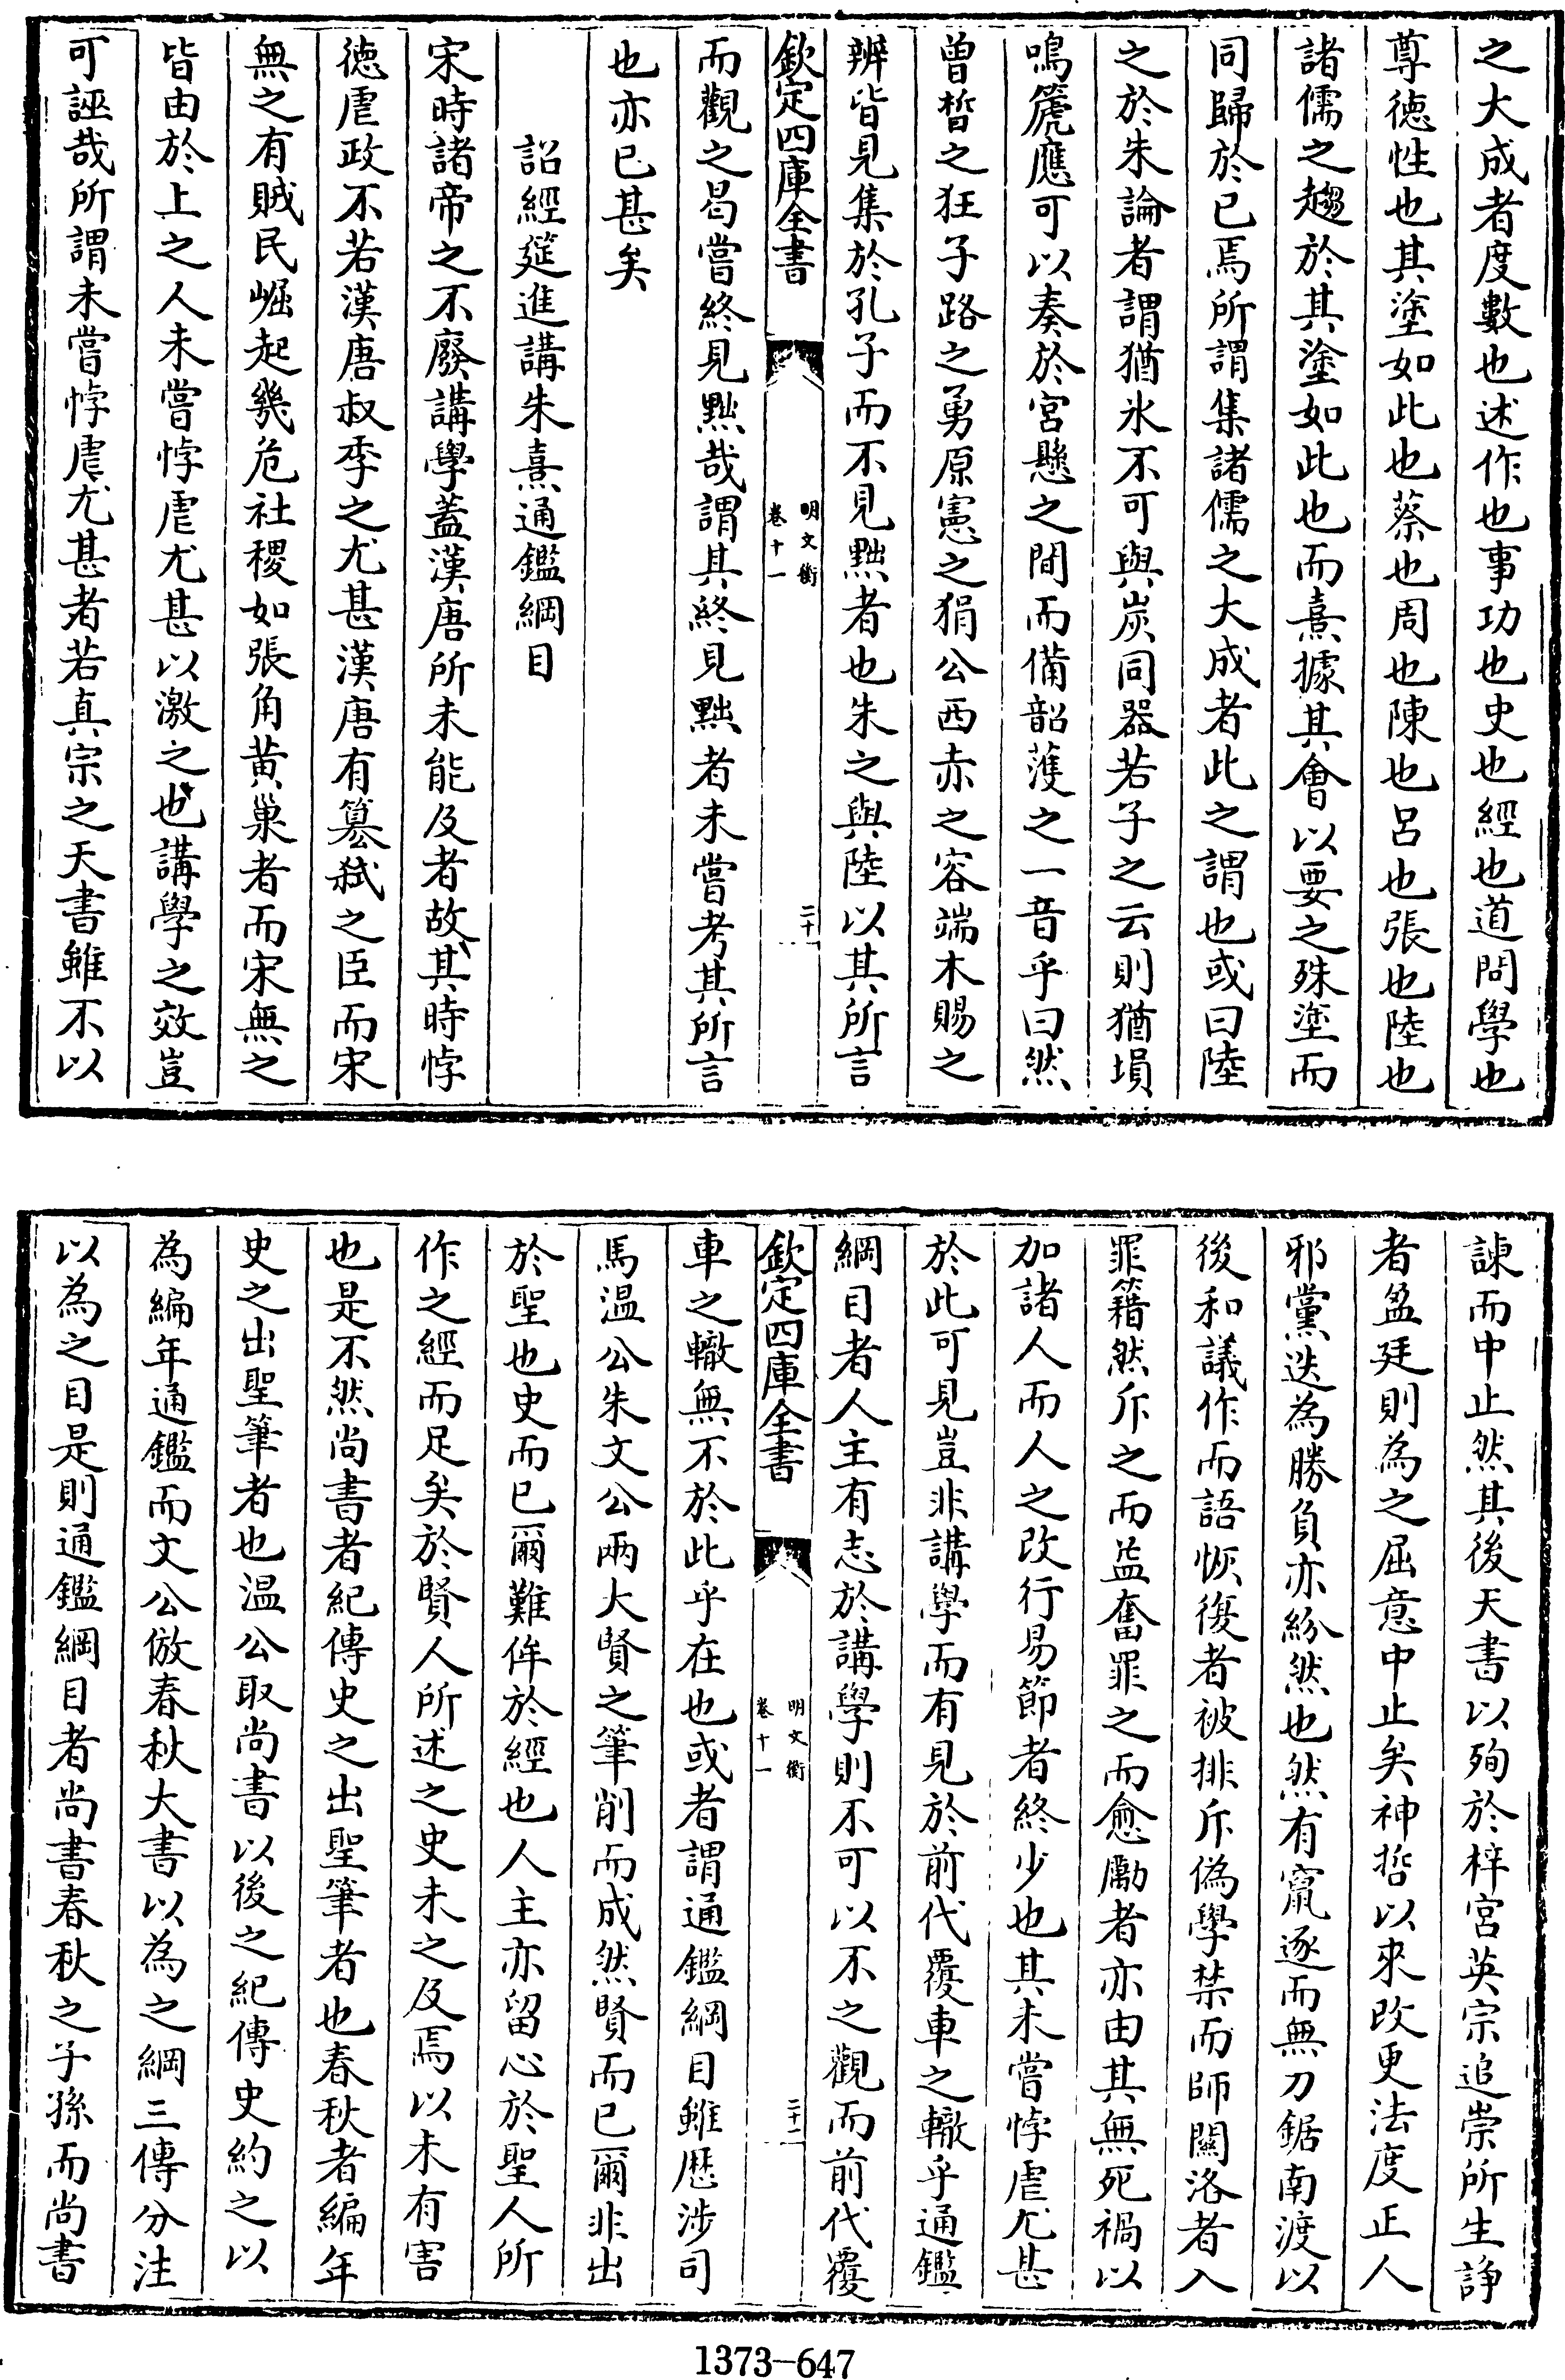 之大成者度數也述作也事功也史也經也道問學也
尊德性也其塗如此也蔡也周也陳也呂也張也陸也
諸儒之趨於其塗如此也而熹據其會以要之殊塗而
同歸於已焉所謂集諸儒之大成者此之謂也或曰陸
之於朱論者謂猶氷不可與炭同器若子之云則猶塤
鳴箎應可以奏於宮懸之間而備韶濩之一音乎曰然
曽晳之狂子路之勇原憲之狷公西赤之容端木賜之
辨皆見集於孔子而不見黜者也朱之與陸以其所言
欽定四庫全書
明文衡
卷十一
二十
而觀之曷嘗終見黜哉謂其終見黜者未嘗考其所言
也亦已甚矣
詔經筵進講朱熹通鑑綱目
宋時諸帝之不廢講學蓋漢唐所未能及者故其時悖
德虐政不若漢唐叔季之尤甚漢唐有簒弑之臣而宋
無之有賊民崛起幾危社稷如張角黄巢者而宋無之
皆由於上之人未嘗悖虐尤甚以激之也講學之效豈
可誣哉所謂未嘗悖虐尤甚者若真宗之天書雖不以
諫而中止然其後天書以殉於梓宮英宗追崇所生諍
者盈廷則為之屈意中止矣神哲以來改更法度正人
邪黨迭為勝負亦紛然也然有竄逐而無刀鋸南渡以
後和議作而語恢復者被排斥偽學禁而師關洛者入
罪籍然斥之而益奮罪之而愈勵者亦由其無死禍以
加諸人而人之改行易節者終少也其未嘗悖虐尤甚
於此可見豈非講學而有見於前代覆車之轍乎通鑑
綱目者人主有志於講學則不可以不之觀而前代覆
欽定四庫全書
明文衡
卷十一
二十一
車之轍無不於此乎在也或者謂通鑑綱目雖歴涉司
馬温公朱文公兩大賢之筆削而成然賢而已爾非出
於聖也史而已爾難侔於經也人主亦留心於聖人所
作之經而足矣於賢人所述之史未之及焉以未有害
也是不然尚書者紀傳史之出聖筆者也春秋者編年
史之出聖筆者也温公取尚書以後之紀傳史約之以
為編年通鑑而文公倣春秋大書以為之綱三傳分注
以為之目是則通鑑綱目者尚書春秋之子孫而尚書
1373-647